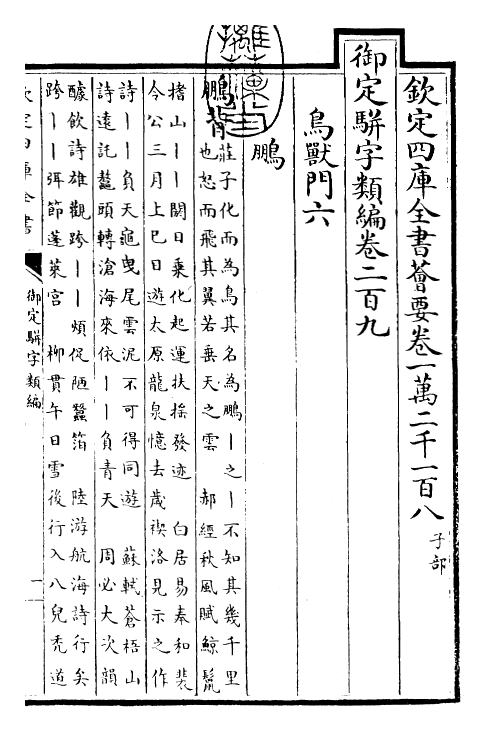 欽定四庫全書薈要卷一萬二千一百八 子部
御定駢字類編卷二百九
鳥獸門六
鵬
鵬背
莊子化而為鳥其名為鵬丨之丨不知其幾千里
也怒而飛其翼若垂天之雲 郝經秋風賦鯨鬣
㨶山丨丨闕日乗化起運扶揺發迹 白居易奉和裴
令公三月上巳日遊太原龍泉憶去歲禊洛見示之作
詩丨丨負天龜曵尾雲泥不可得同遊 蘇軾蒼梧山
詩遠託鼇頭轉滄海來依丨丨負青天 周必大次韻
醵飲詩雄觀跨丨丨煩促陋蠶箔 陸游航海詩行矣
跨丨丨弭節蓬萊宫 柳貫午日雪後行入八兒禿道
欽定四庫全書
御定駢字類編
一